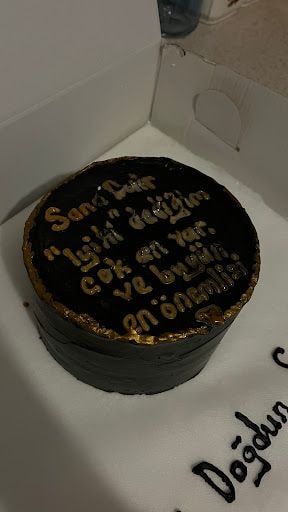 Sana Dair
"İyiki" dediğim
çok an var.
ve bugün
en önemlisi
Doğdun